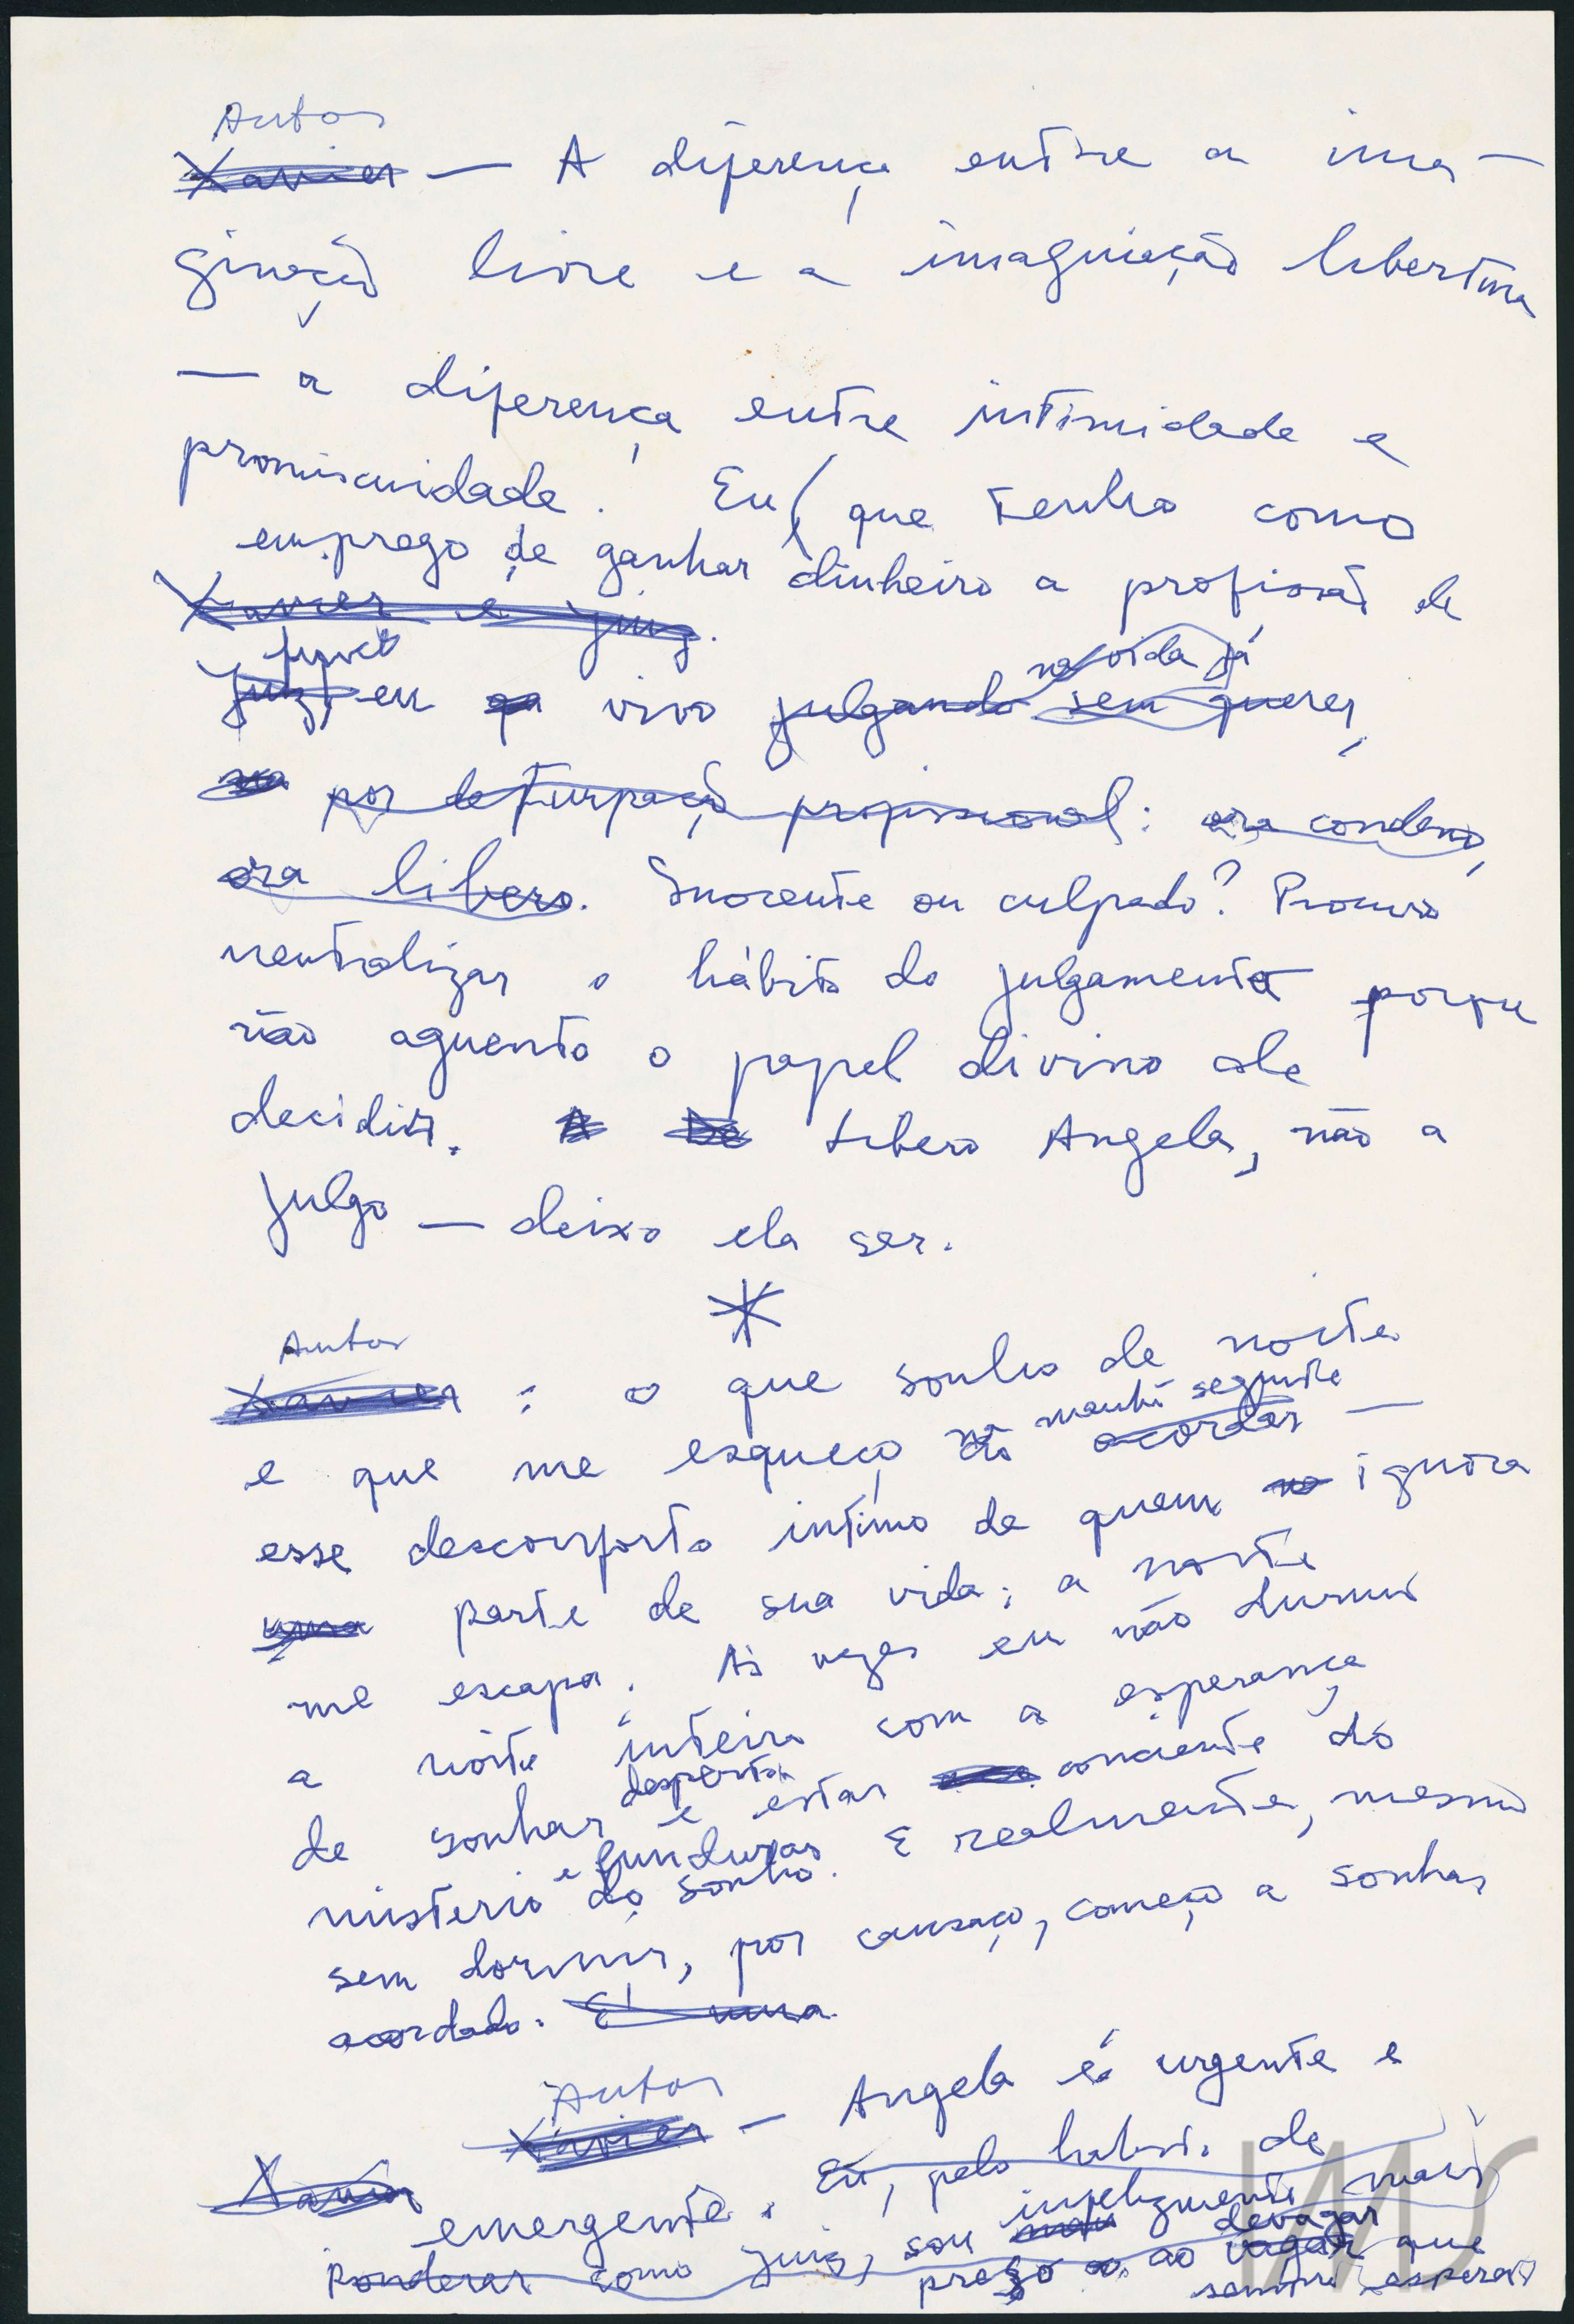 Autor
Xavier — A diferença entre a ima-
ginação livre e a imaginação libertina
— a diferença entre intimidade e
promiscuidade. Eu (que tenho como
emprego de ganhar dinheiro a profissão de
Xavier e juiz.
na vida já
juiz, eu vivo julgando sem querer,
por deturpação profissional: ora condeno,
ora libero. Inocente ou culpado? Procuro
neutralizar o hábito do julgamento porque
não aguento o papel divino de
decidir. Libero Angela, não a
julgo — deixo ela ser.
*
Autor
Xavier : o que sonho de noite
manhã seguinte
e que me esqueço na acordar —
esse desconforto intimo de quem ignora
uma parte de sua vida; a noite
me escapa. Às vezes eu não durmo
a noite inteira com a esperança
desperto
de sonhar e estar conciente do
e funduras
misterio do sonho. E realmente, mesmo
sem dormir, por cansaço, começo a sonhar
acordado. É uma
Autor
Xavier — Angela é urgente e
Xavier emergente. Eu, pelo habito de
infelizmente mais
devagar
ponderar como juiz, sou prezo ao vagar que
sempre esperou